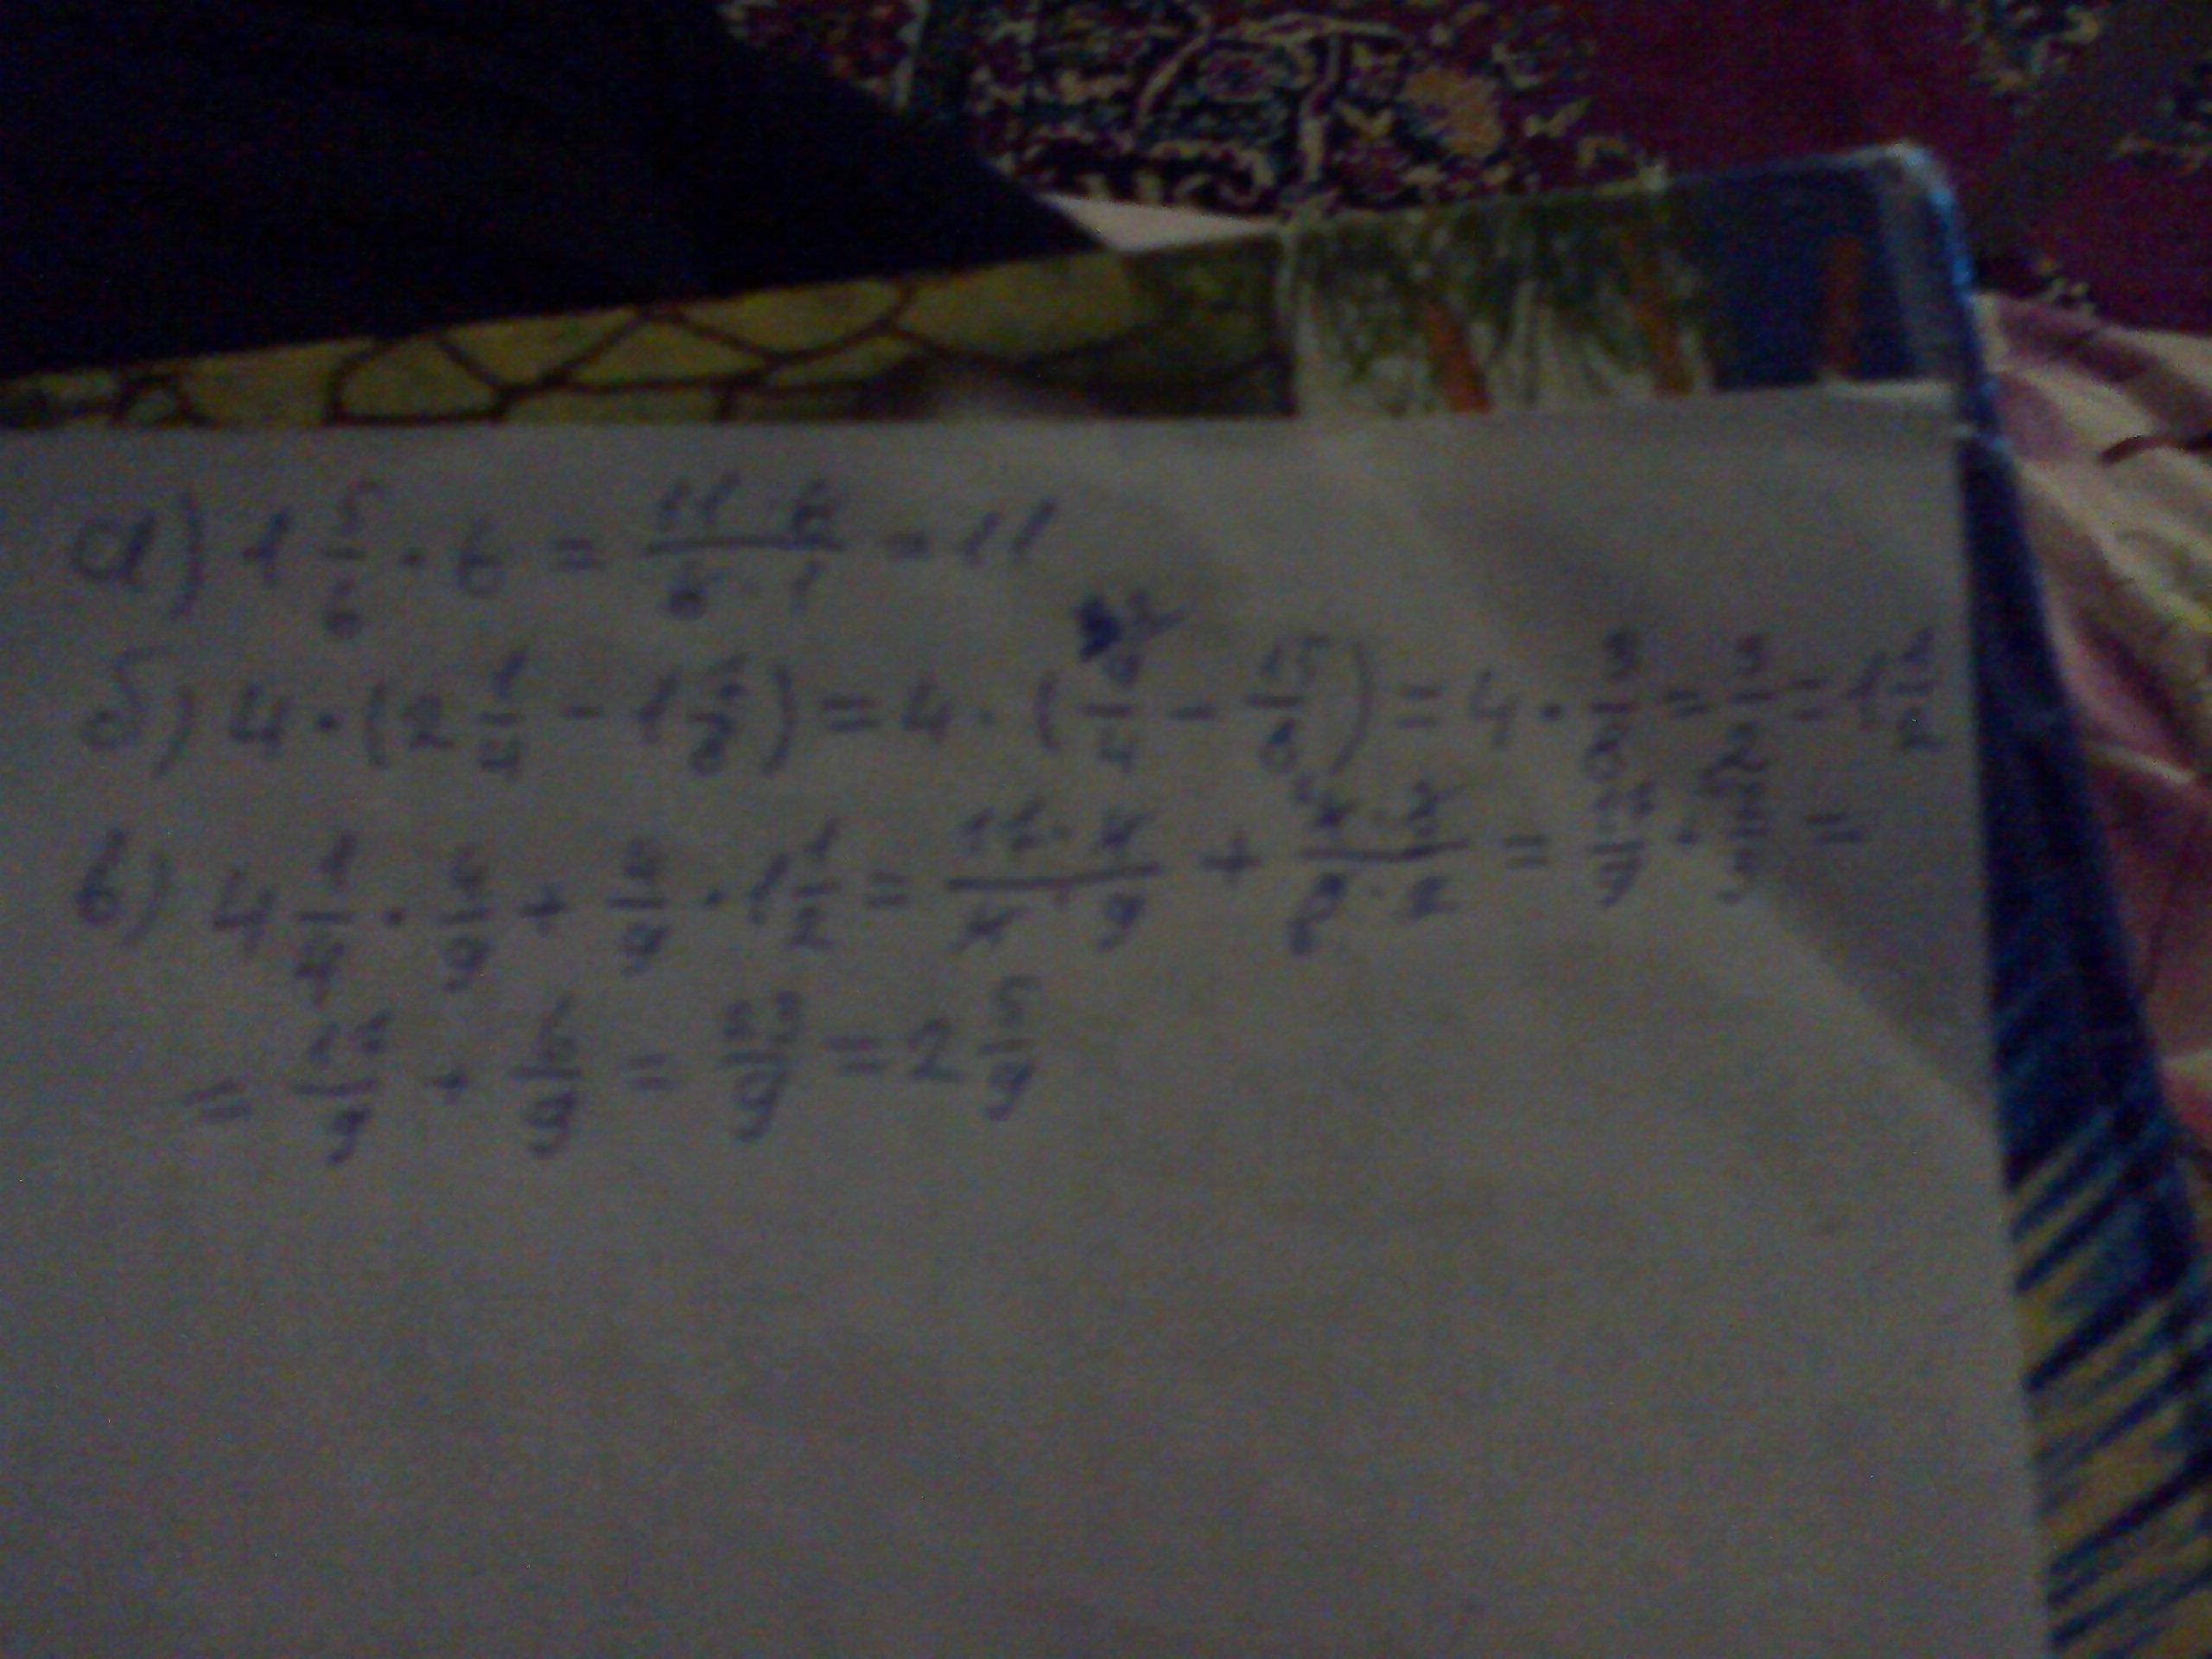 а) 1 5/6 · 6 = 11 · 6 / 6 · 1 = 11
б) 4 · (2 1/4 - 1 7/8) = 4 · (9/4 - 15/8) = 4 · 3/8 = 3/2 = 1 1/2
в) 4 1/4 · 4/9 + 4/9 · 1 1/2 = 17 · 4 / 4 · 9 + 4 · 3 / 9 · 2 = 17/9 + 2/3 =
= 17/9 + 6/9 = 23/9 = 2 5/9